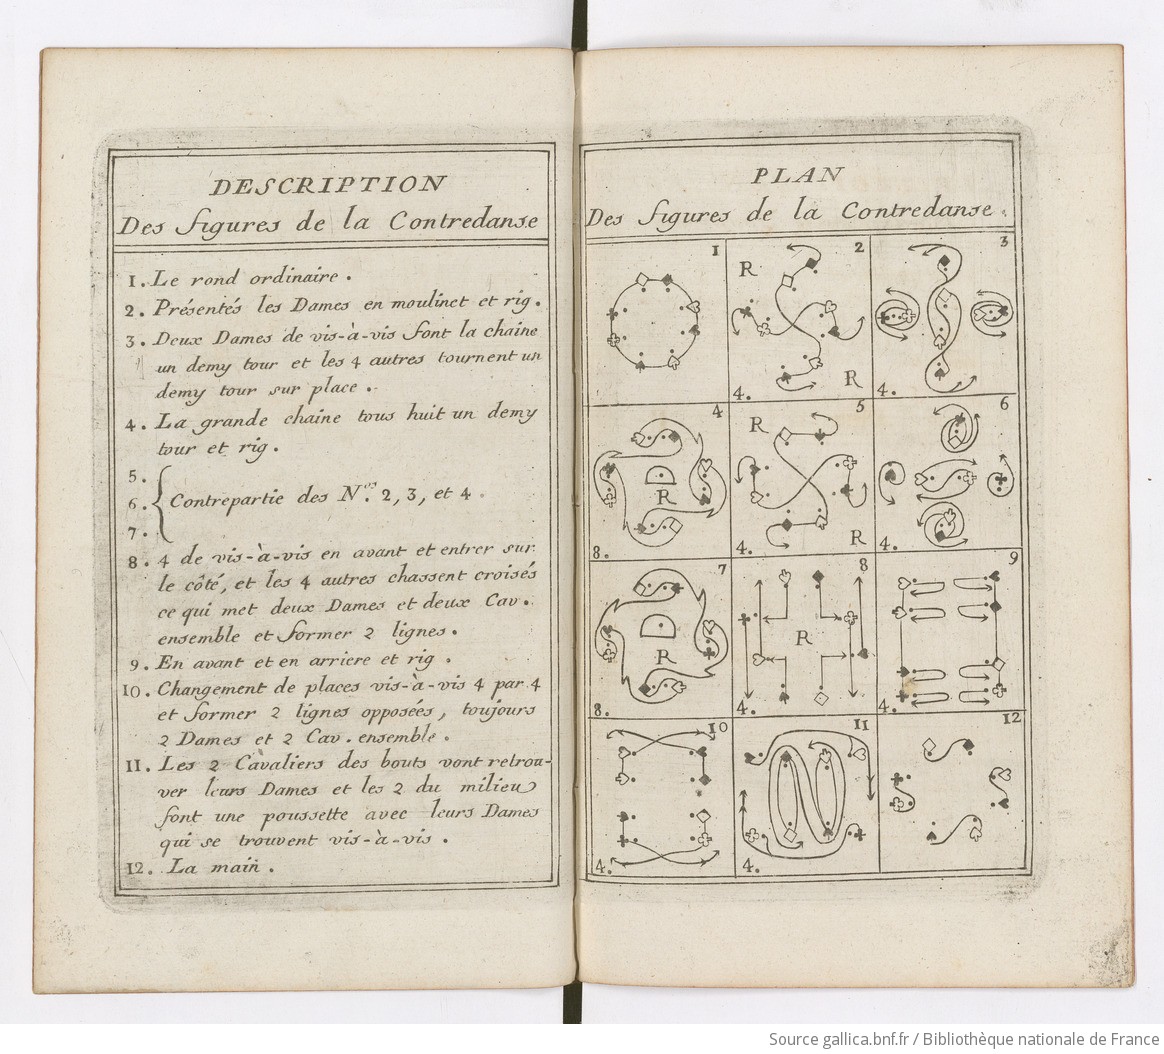 DESCRIPTION
Des figures de la Contredanse
1. Le rond ordinaire.
2. Présentés les Dames en moulinet et rig.
3. Deux Dames de vis-à-vis font la chaine
un demy tour et les 4 autres tournent un
demy tour sur place.
4. La grande chaine tous huit un demy
tour et rig.
5.
6. Contrepartie des Nos. 2, 3, et 4.
7.
8. 4 de vis-à-vis en avant et entrer sur
le côté, et les 4 autres chassent croisés
ce qui met deux Dames et deux Cav.
ensemble et former 2 lignes.
9. En avant et en arriere et rig.
10. Changement de places vis-à-vis 4 par 4
et former 2 lignes opposées, toujours
2 Dames et 2 Cav. ensemble.
11. Les 2 Cavaliers des bouts vont retrou-
ver leurs Dames et les 2 du milieu
font une poussette avec leurs Dames
qui se trouvent vis-à-vis.
12. La main.
PLAN
Des figures de la Contredanse.
1 2 3
R
R
4. 4.
4 5 6
R
D
R
R
8. 4. 4.
7 8 9
D
R
R
8. 4. 4.
10 11 12
4. 4.
Source gallica.bnf.fr / Bibliothèque nationale de France